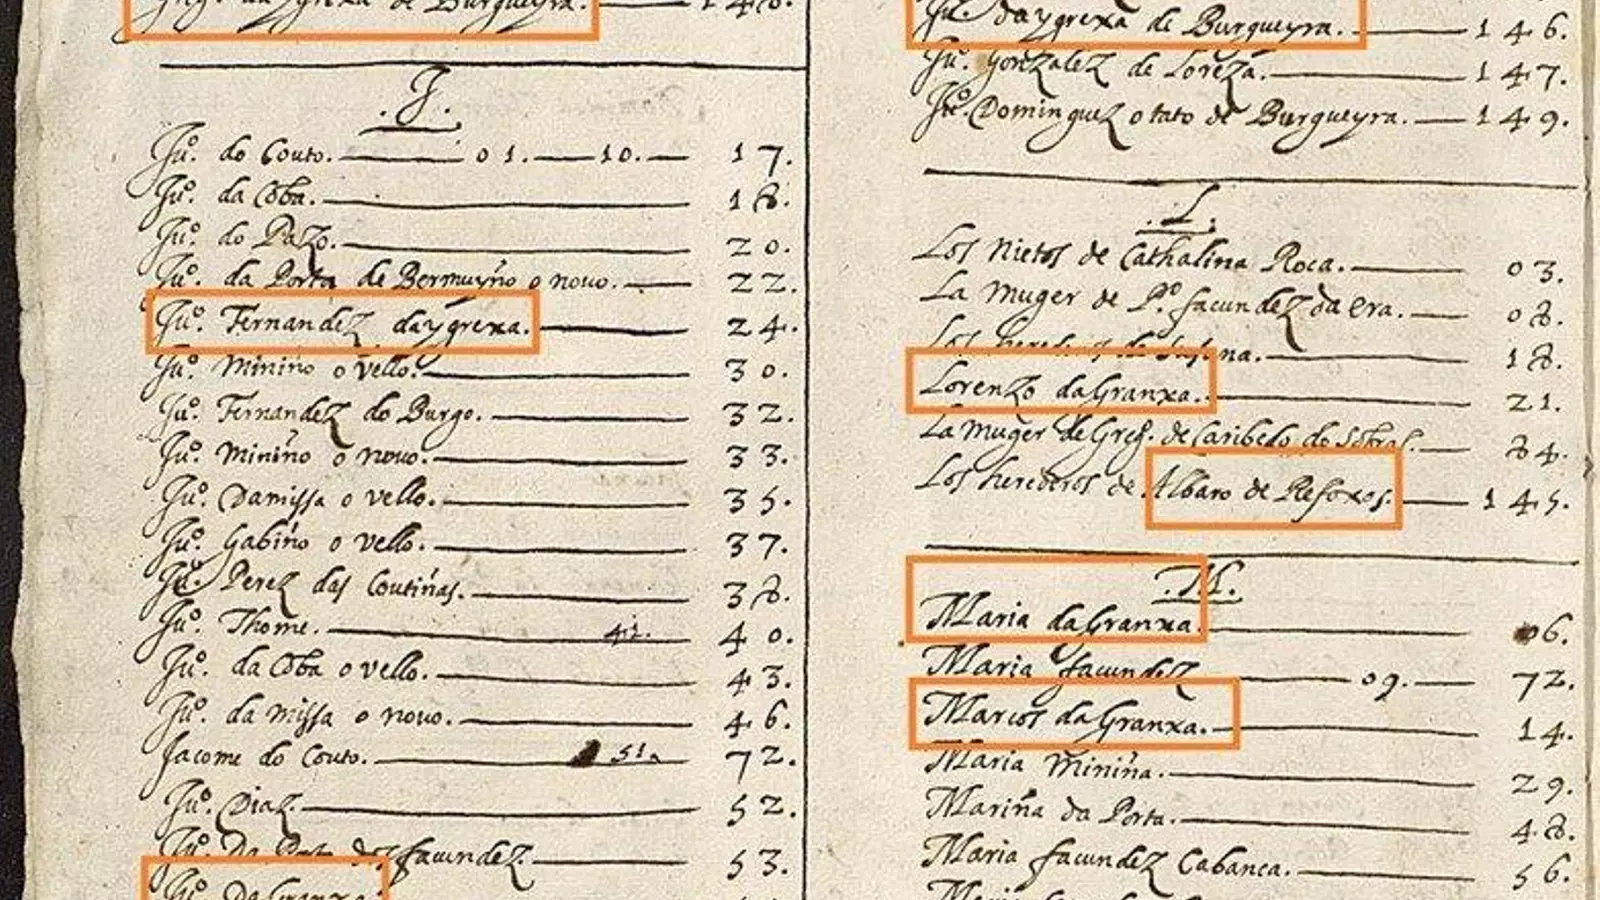 da ygrexa de Burgueyra. 146.
.J.
Juº. do Couto. 01. 10. 17.
Juº. da Coba. 18.
Juº. do Pazo. 20.
Juº. da Porta de Bermuyño o novo. 22.
Juº. Fernandez daygrexa. 24.
Juº. Miniño o vello. 30.
Juº. Fernandez do Burgo. 32.
Juº. Miniño o novo. 33.
Juº. Damissa o vello. 35.
Juº. Gabiño o vello. 37.
Juº. Perez das Coutiñas. 38.
Juº. Thome. 41. 40.
Juº. da Coba o vello. 43.
Juº. da missa o novo. 46.
Jacome do Couto. 51. 72.
Juº. Diaz. 52.
Juº. Da Porta dos facundez. 53.
Juº. DaGranxa
Juº. daygrexa de Burgueyra. 146.
Juº. Gonzalez de Loreza. 147.
Juº. Dominguez o tato de Burgueyra. 149.
.L.
Los Nietos de Cathalina Roca. 03.
La Muger de Pº. facundez da era. 08.
Los herederos de Susana. 18.
Lorenzo daGranxa. 21.
La Muger de Greg. de Caribelo do Sobral. 84.
Los herederos de Albaro de Refoxos. 145.
.M.
Maria daGranxa. 06.
Maria facundez 09. 72.
Marcos daGranxa. 14.
Maria Miniña. 29.
Mariña da Porta. 48.
Maria facundez Cabanca. 56.